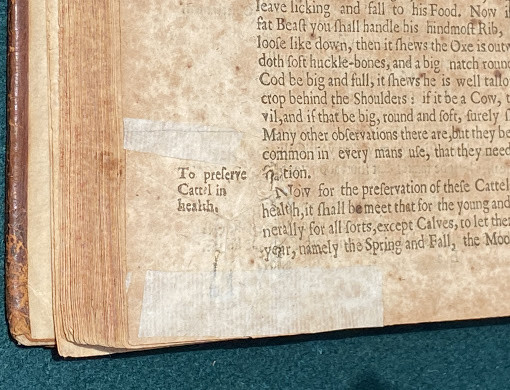 leave licking and fall to his Food. Now i
fat Beaſt you ſhall handle his hindmoſt Rib,
looſe like down, then it ſhews the Oxe is outw
doth ſoft huckle-bones, and a big natch round
Cod be big and full, it ſhews he is well tallo
crop behind the Shoulders: if it be a Cow, t
vil, and if that be big, round and ſoft, ſurely ſ
Many other obſervations there are, but they be
common in every mans uſe, that they need
tion.
To preſerve
Cattel in
health.
Now for the preſervation of theſe Cattel
health, it ſhall be meet that for the young and
nerally for all ſorts, except Calves, to let the
year, namely the Spring and Fall, the Moo